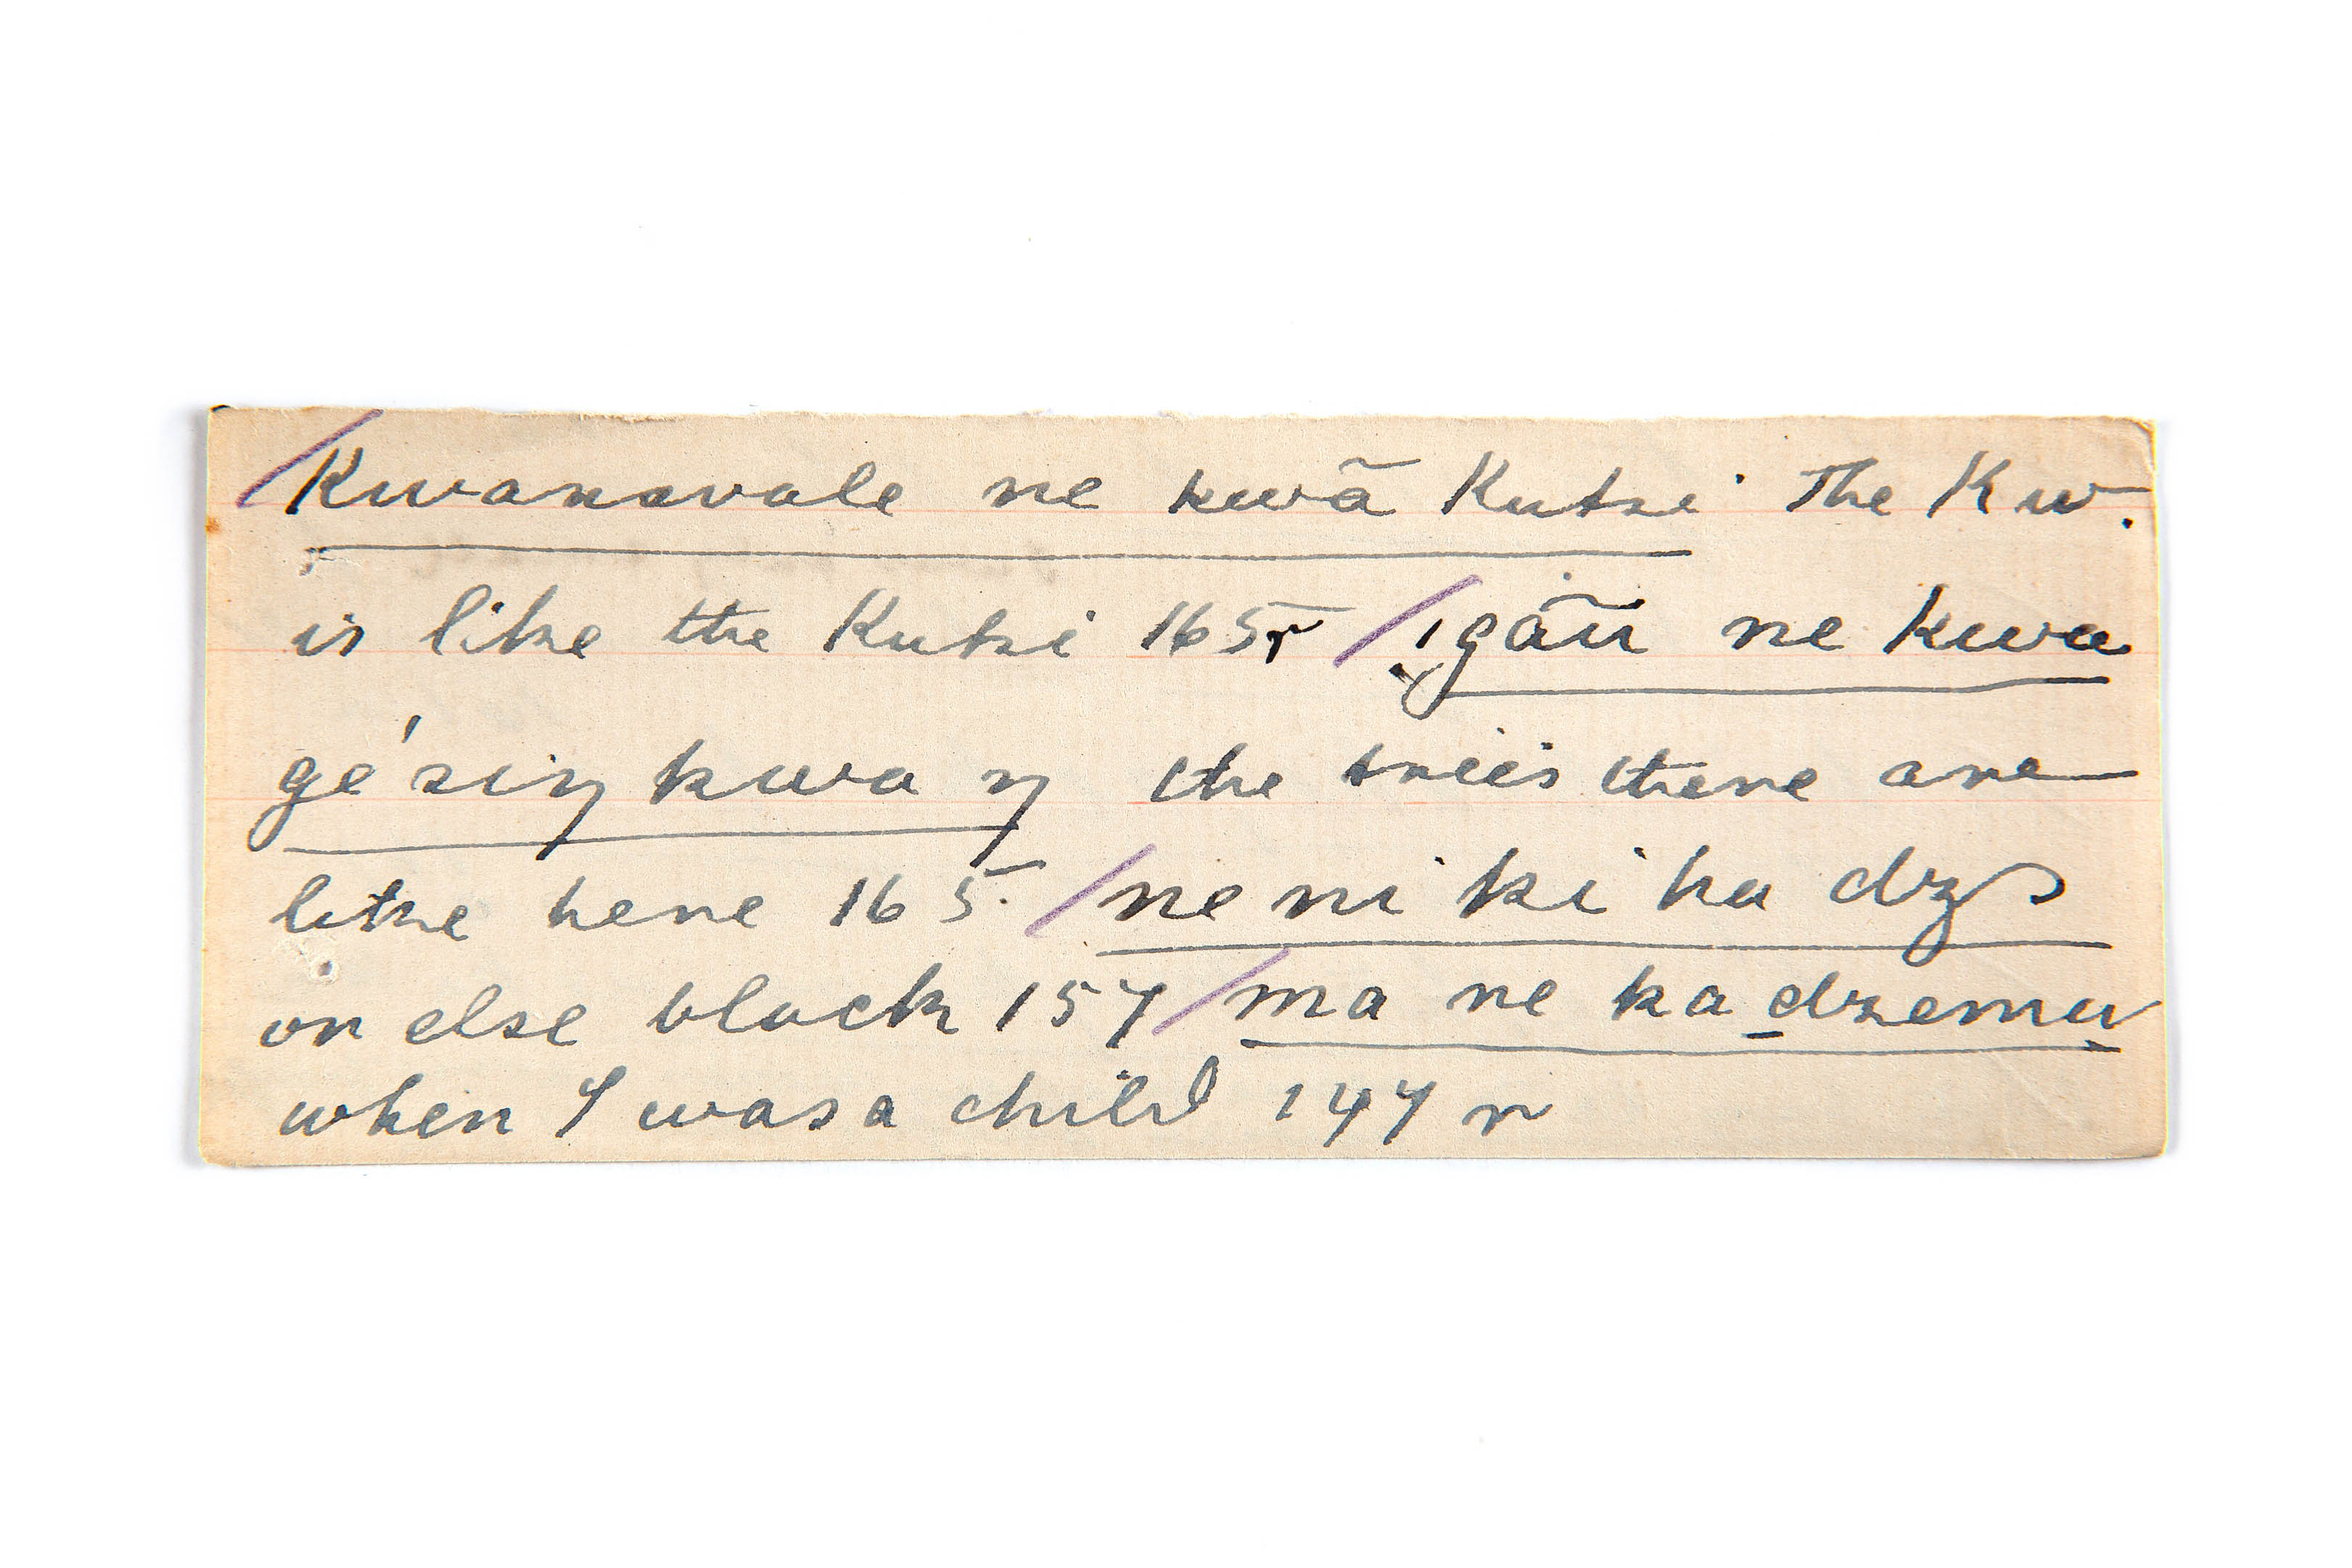 /Kwanavale ne kwã Kutsi The Kw.
is like the Kutsi 165r /igãũ ne kwa
gé siŋ kwa ŋ the trees there are
like here 165. /ne ni ki ha dzɔ
or else black 157 /ma ne ka dzemu
when I was a child 147 r